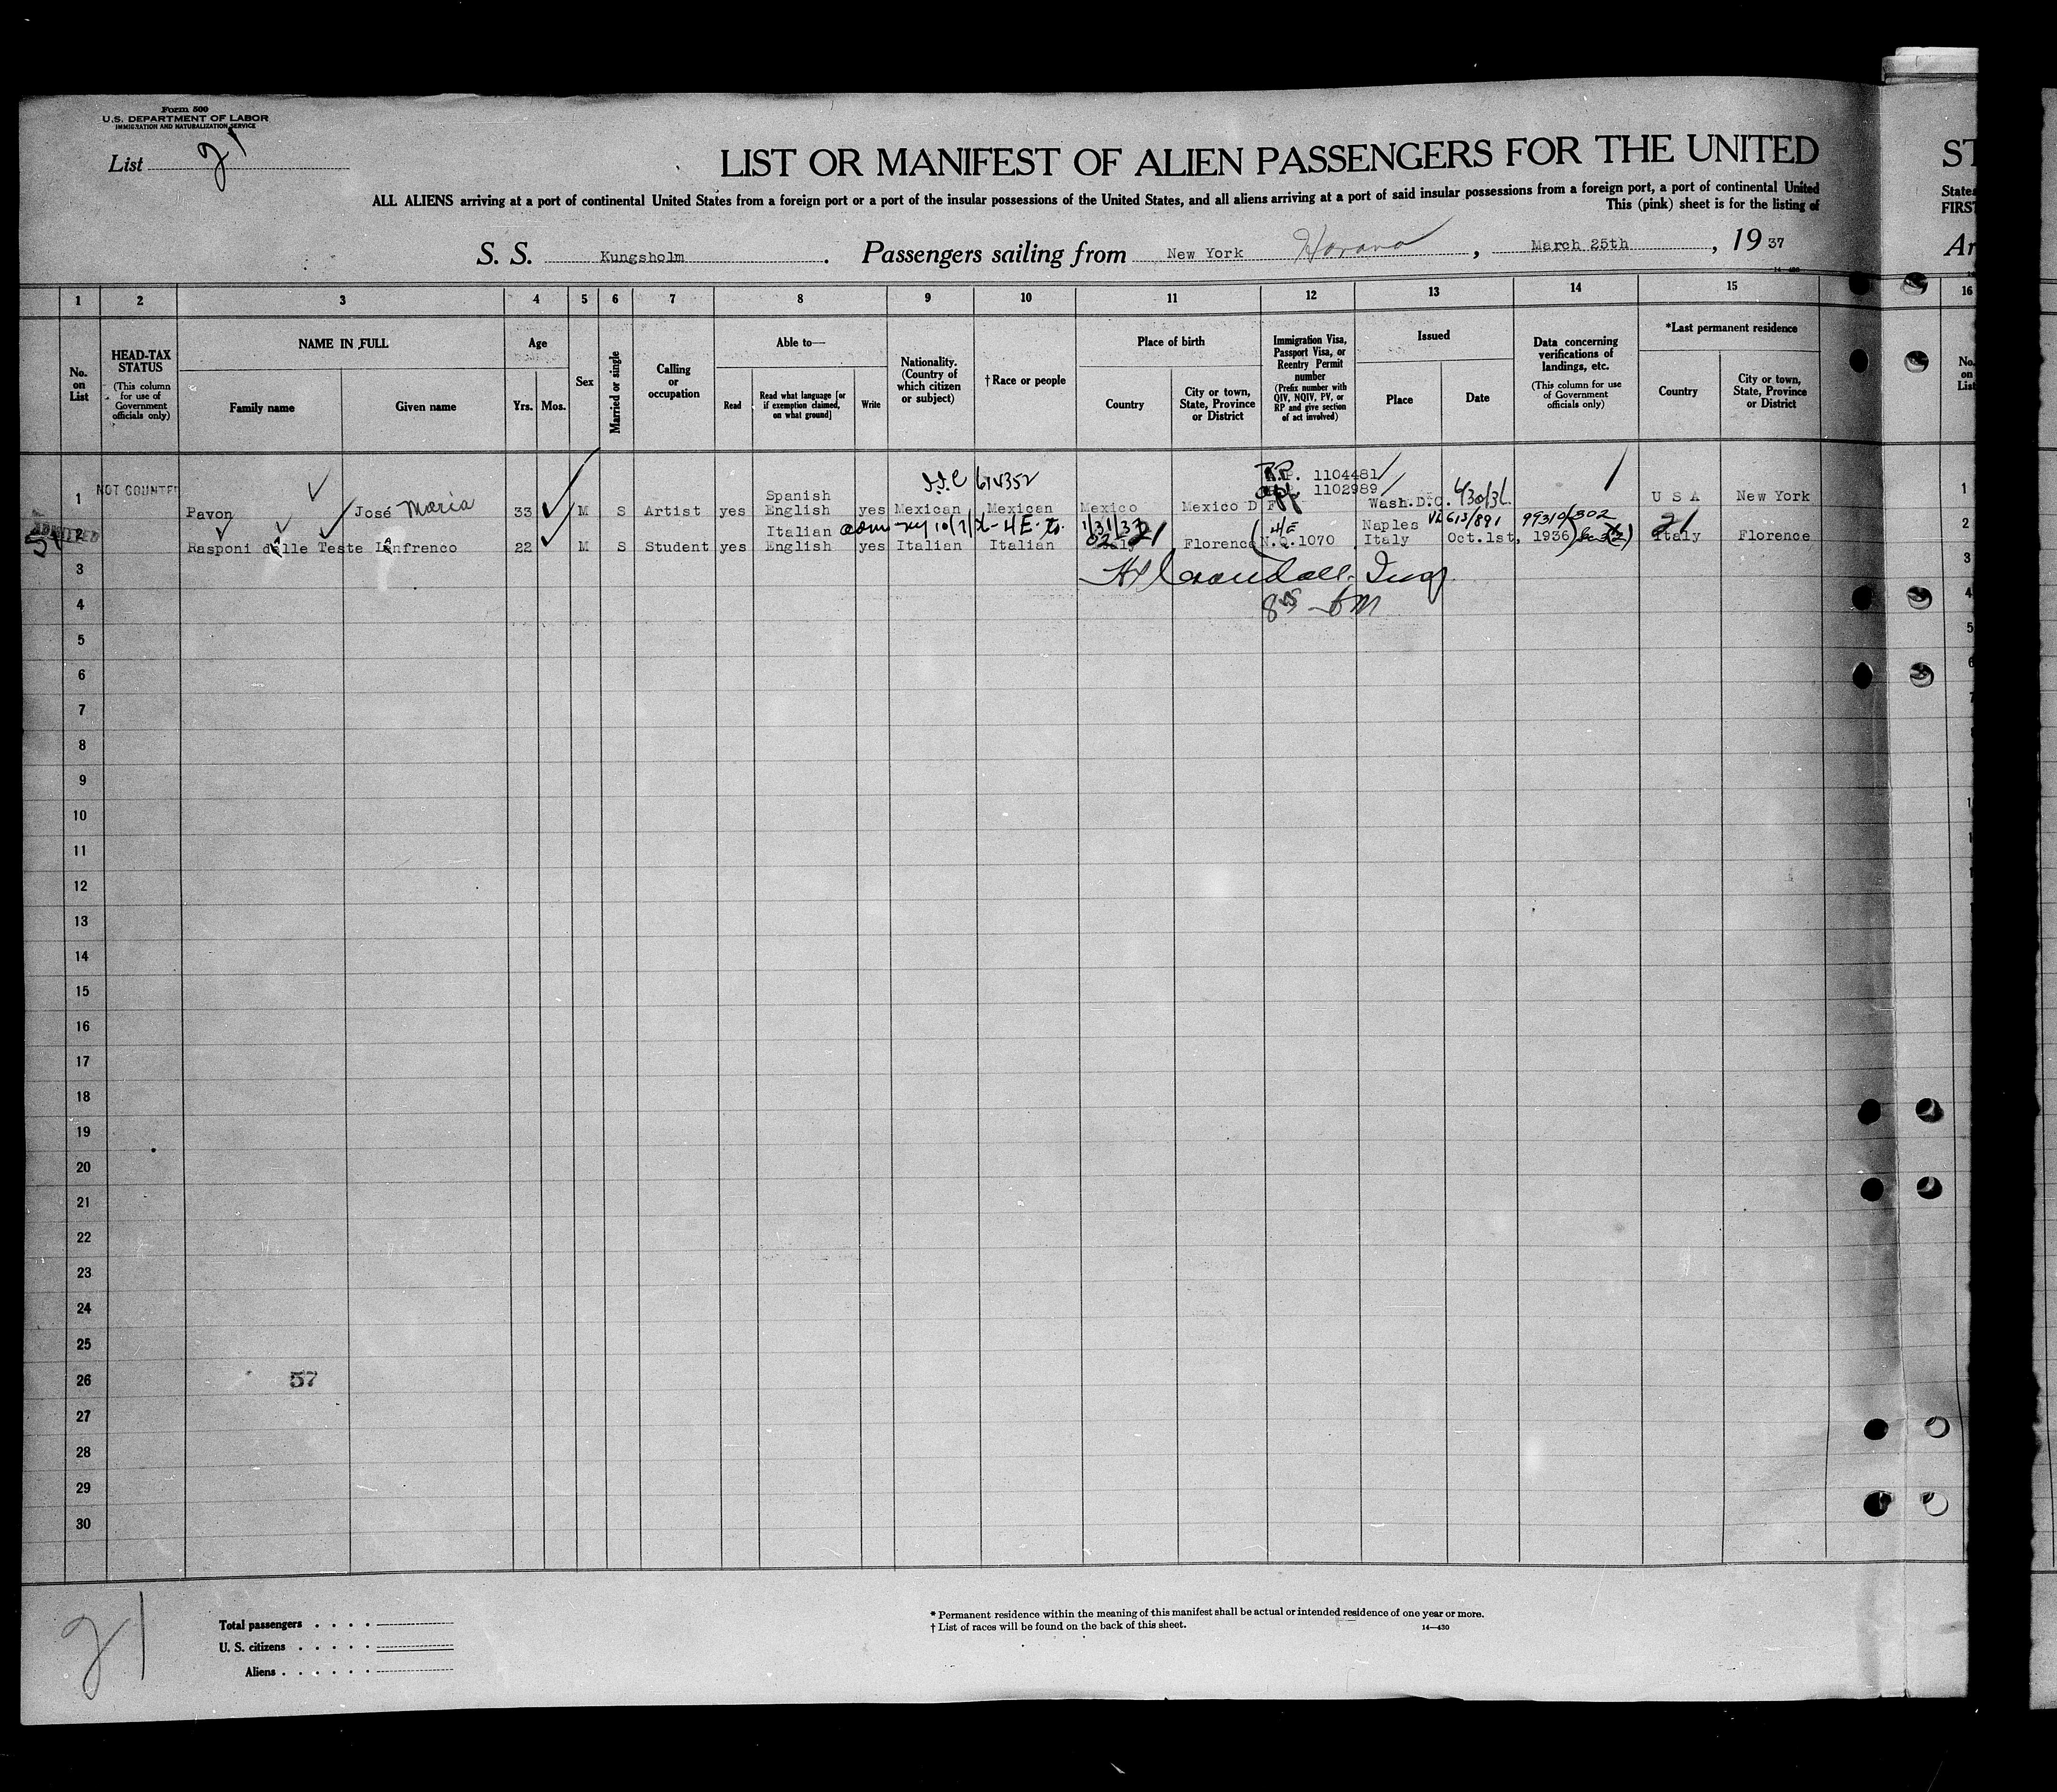 Form 500
U.S. DEPARTMENT OF LABOR
IMMIGRATION AND NATURALIZATION SERVICE
List 21
LIST OR MANIFEST OF ALIEN PASSENGERS FOR THE UNITED
ST
ALL ALIENS arriving at a port of continental United States from a foreign port or a port of the insular possessions of the United States, and all aliens arriving at a port of said insular possessions from a foreign port, a port of continental United
States
This (pink) sheet is for the listing of
FIRST
S. S. Kungsholm. Passengers sailing from New York Havana, March 25th, 19 37
Ar
14-430
1 2 3 4 5 6 7 8 9 10 11 12 13 14 15 16
No. on List
HEAD-TAX STATUS
(This column for use of Government officials only)
NAME IN FULL
Family name
Given name
Age
Yrs.
Mos.
Sex
Married or single
Calling or occupation
Able to—
Read
Read what language [or if exemption claimed, on what ground]
Write
Nationality. (Country of which citizen or subject)
† Race or people
Place of birth
Country
City or town, State, Province or District
Immigration Visa, Passport Visa, or Reentry Permit number
(Prefix number with QIV, NQIV, PV, or RP and give section of act involved)
Issued
Place
Date
Data concerning verifications of landings, etc.
(This column for use of Government officials only)
*Last permanent residence
Country
City or town, State, Province or District
No. on List
614352
R.P. 1104481
1102989
1 NOT COUNTED Pavon José Maria 33 M S Artist yes Spanish English yes Mexican Mexican Mexico Mexico D F Wash.D.C. U S A New York 1
ADMITTED
2 Rasponi dalle Teste Lanfranco 22 M S Student yes Italian English yes Italian Italian Italy Florence N.Q.1070 Naples Italy Oct.1st, 1936 Italy Florence 2
4E
613/891
99310/302
21
3 3
Crandall, Insp.
4 4
5 5
6 6
7 7
8
9
10
11
12
13
14
15
16
17
18
19
20
21
22
23
24
25
26 57
27
28
29
30
21
Total passengers
U. S. citizens
Aliens
* Permanent residence within the meaning of this manifest shall be actual or intended residence of one year or more.
† List of races will be found on the back of this sheet.
14—430